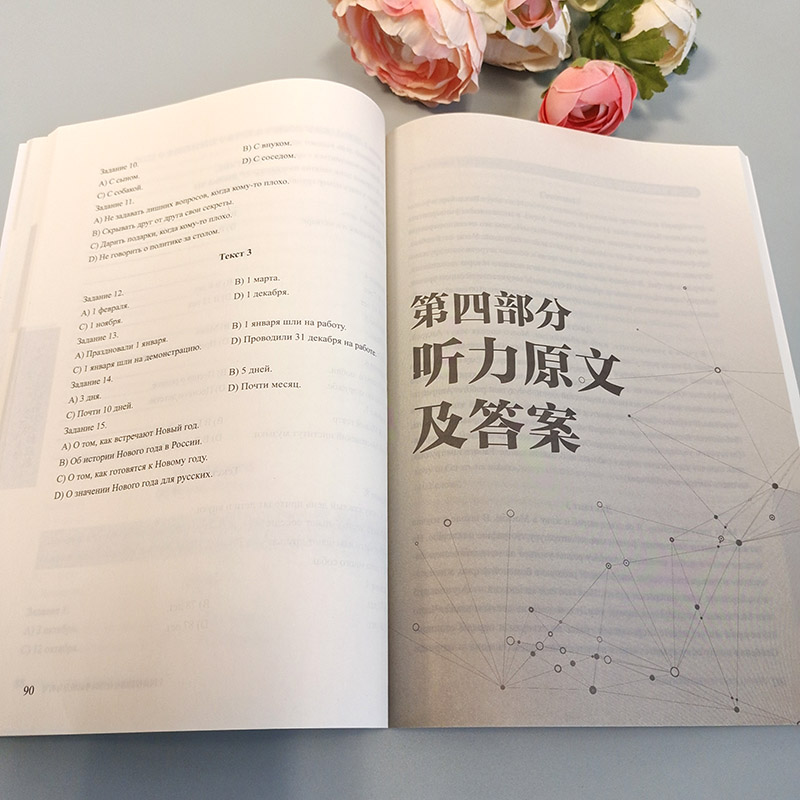 Задание 10.
A) С сыном. B) С внуком.
C) С собакой. D) С соседом.
Задание 11.
A) Не задавать лишних вопросов, когда кому-то плохо.
B) Скрывать друг от друга свои секреты.
C) Дарить подарки, когда кому-то плохо.
D) Не говорить о политике за столом.
Текст 3
Задание 12.
A) 1 февраля. B) 1 марта.
C) 1 ноября. D) 1 декабря.
Задание 13.
A) Праздновали 1 января. B) 1 января шли на работу.
C) 1 января шли на демонстрацию. D) Проводили 31 декабря на работе.
Задание 14.
A) 3 дня. B) 5 дней.
C) Почти 10 дней. D) Почти месяц.
Задание 15.
A) О том, как встречают Новый год.
B) Об истории Нового года в России.
C) О том, как готовятся к Новому году.
D) О значении Нового года для русских.
90
第四部分
听力原文
及答案